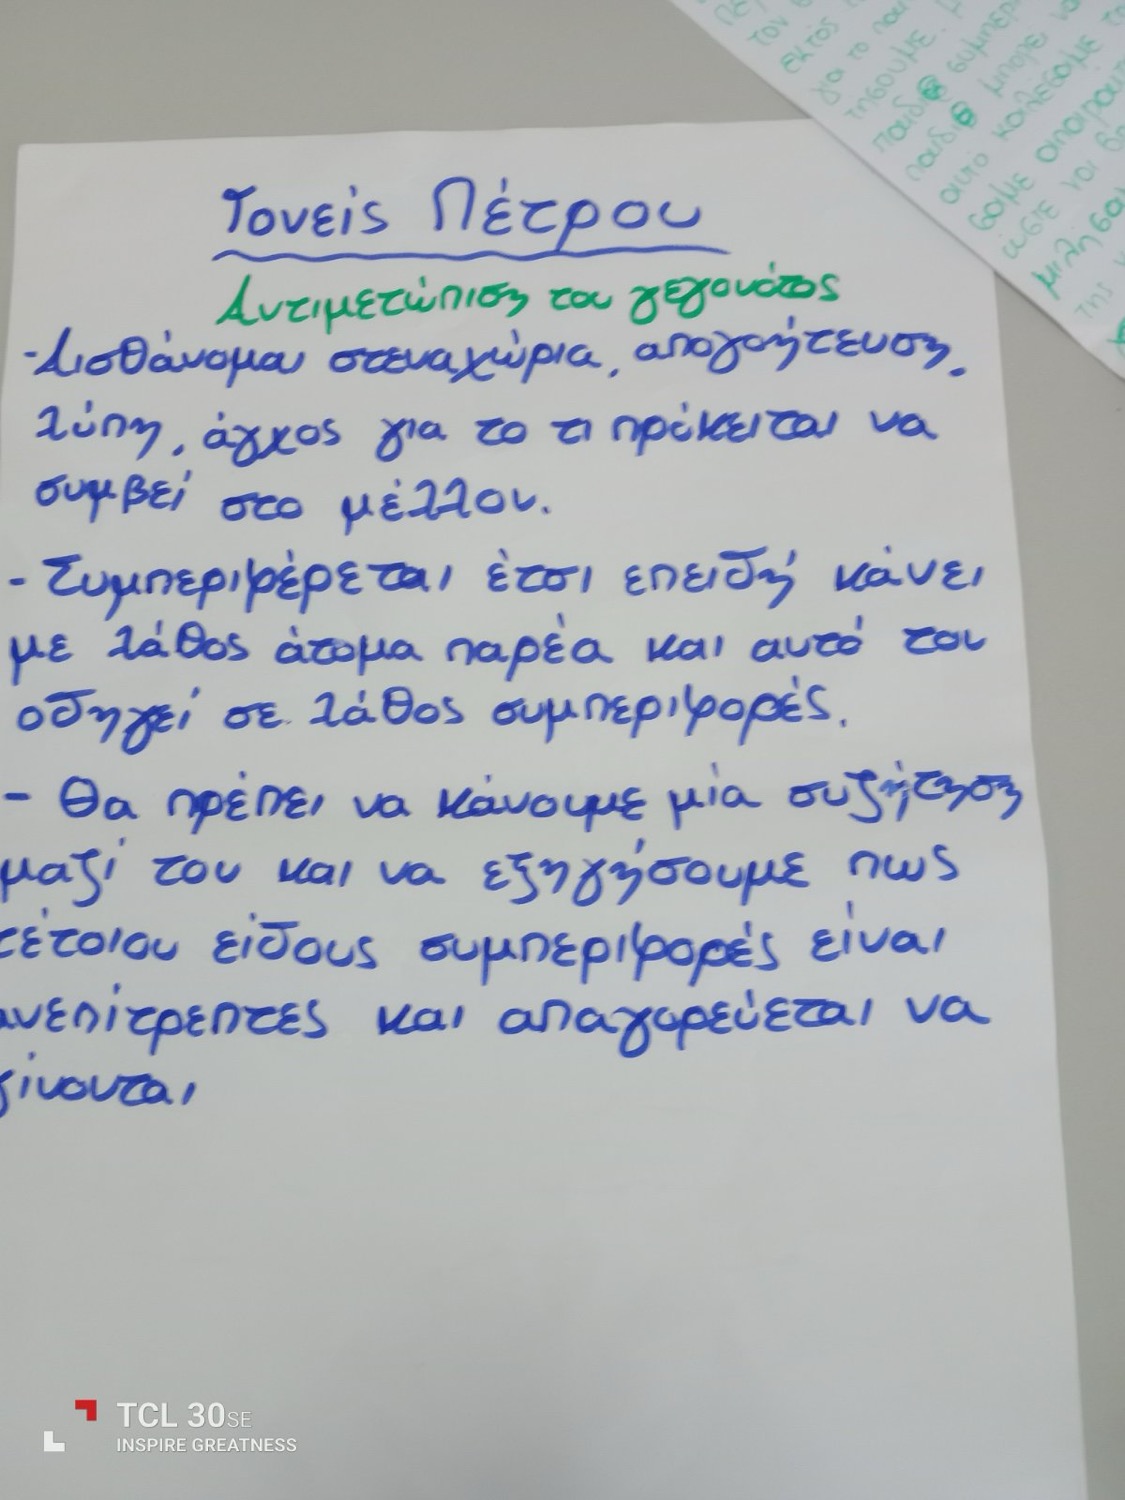 Γονείς Πέτρου
Αντιμετώπιση του γεγονότος
-Αισθάνομαι στεναχώρια, απογοήτευση,
λύπη, άγχος για το τι πρόκειται να
συμβεί στο μέλλον.
- Συμπεριφέρεται έτσι επειδή κάνει
με λάθος άτομα παρέα και αυτό τον
οδηγεί σε λάθος συμπεριφορές.
- Θα πρέπει να κάνουμε μία συζήτηση
μαζί του και να εξηγήσουμε πως
τέτοιου είδους συμπεριφορές είναι
ανεπίτρεπτες και απαγορεύεται να
γίνονται
τον
εκτός
για το
τησουμε.
παιδι συμπερι
παιδι μπορεί να
αυτό καλέσουμε
σουμε απαραίτ
ώστε να
μιλήσου
της
TCL 30SE
INSPIRE GREATNESS